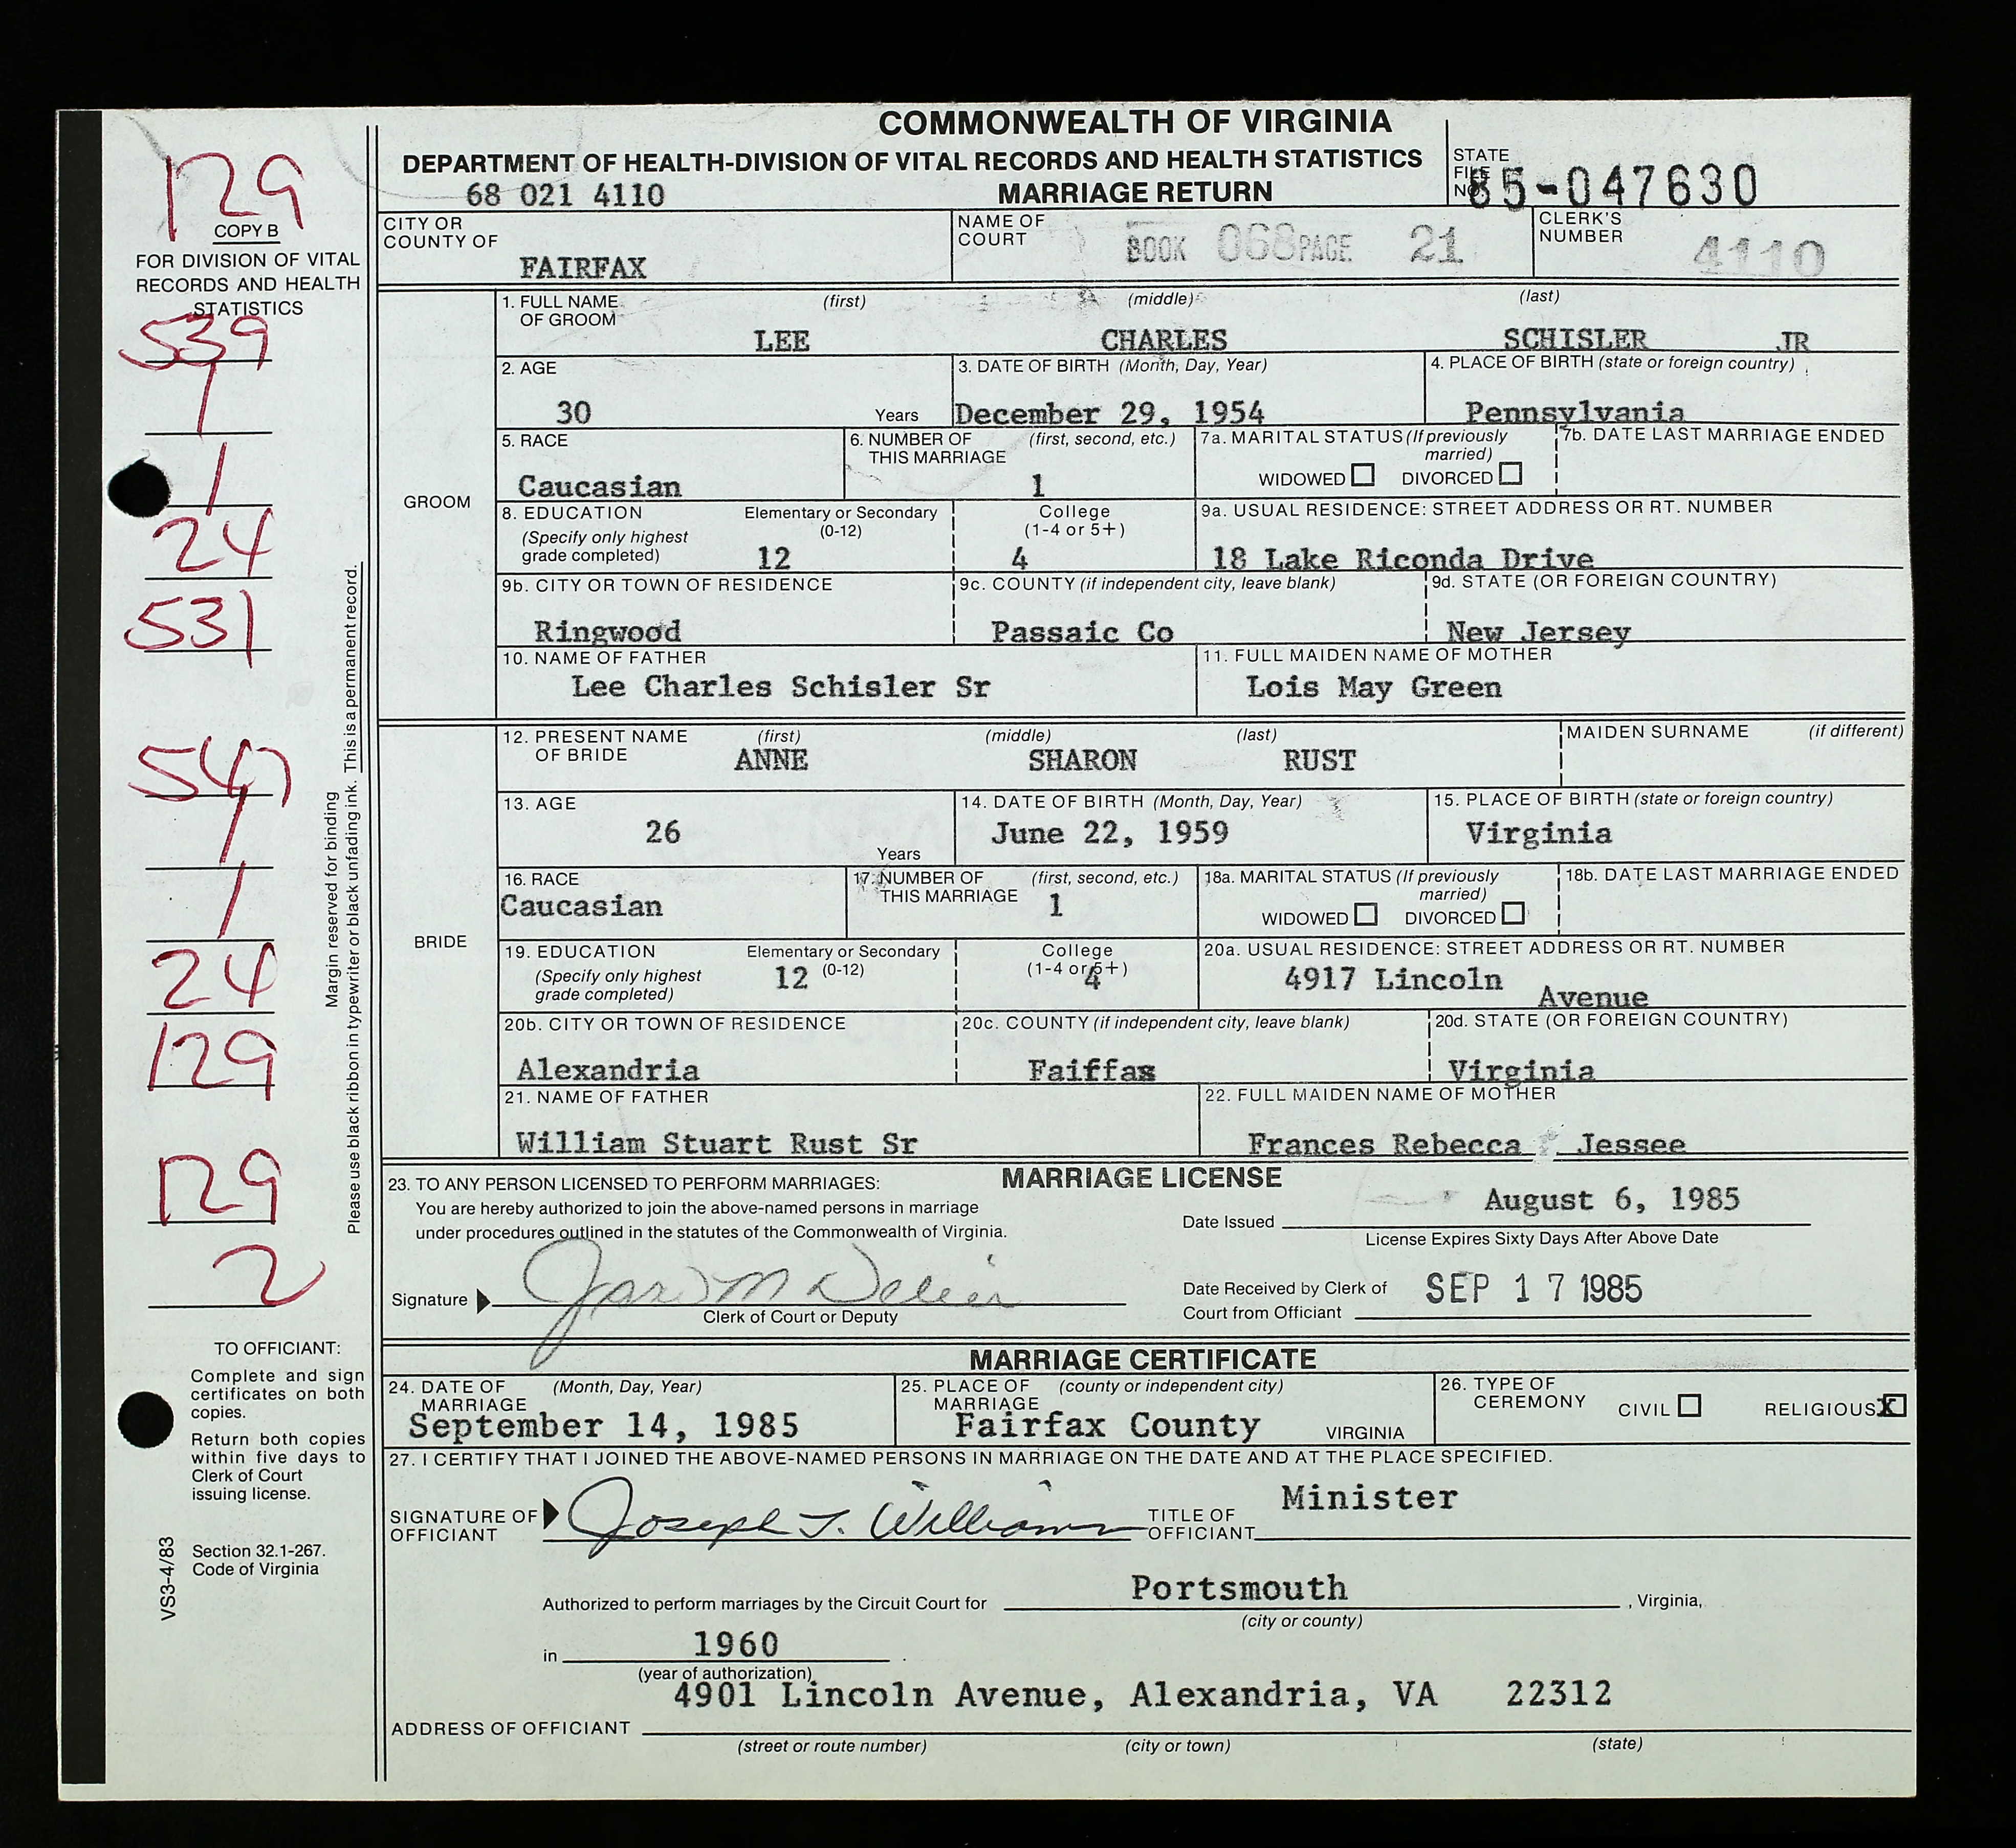 COMMONWEALTH OF VIRGINIA
DEPARTMENT OF HEALTH-DIVISION OF VITAL RECORDS AND HEALTH STATISTICS
68 021 4110 MARRIAGE RETURN
STATE FILE NO. 85-047630
129
COPY B
FOR DIVISION OF VITAL
RECORDS AND HEALTH
STATISTICS
539
1
1
24
531
547
1
1
24
129
129
2
Margin reserved for binding
Please use black ribbon in typewriter or black unfading ink. This is a permanent record.
TO OFFICIANT:
Complete and sign
certificates on both
copies.
Return both copies
within five days to
Clerk of Court
issuing license.
Section 32.1-267.
Code of Virginia
VS3-4/83
CITY OR COUNTY OF FAIRFAX
NAME OF COURT BOOK 068 PAGE 21
CLERK'S NUMBER 4110
GROOM
1. FULL NAME OF GROOM (first) (middle) (last)
LEE CHARLES SCHISLER JR
2. AGE 30 Years
3. DATE OF BIRTH (Month, Day, Year) December 29, 1954
4. PLACE OF BIRTH (state or foreign country) Pennsylvania
5. RACE Caucasian
6. NUMBER OF THIS MARRIAGE (first, second, etc.) 1
7a. MARITAL STATUS (If previously married) WIDOWED DIVORCED
7b. DATE LAST MARRIAGE ENDED
8. EDUCATION (Specify only highest grade completed) Elementary or Secondary (0-12) 12
College (1-4 or 5+) 4
9a. USUAL RESIDENCE: STREET ADDRESS OR RT. NUMBER 18 Lake Riconda Drive
9b. CITY OR TOWN OF RESIDENCE Ringwood
9c. COUNTY (if independent city, leave blank) Passaic Co
9d. STATE (OR FOREIGN COUNTRY) New Jersey
10. NAME OF FATHER Lee Charles Schisler Sr
11. FULL MAIDEN NAME OF MOTHER Lois May Green
BRIDE
12. PRESENT NAME OF BRIDE (first) (middle) (last)
ANNE SHARON RUST
MAIDEN SURNAME (if different)
13. AGE 26 Years
14. DATE OF BIRTH (Month, Day, Year) June 22, 1959
15. PLACE OF BIRTH (state or foreign country) Virginia
16. RACE Caucasian
17. NUMBER OF THIS MARRIAGE (first, second, etc.) 1
18a. MARITAL STATUS (If previously married) WIDOWED DIVORCED
18b. DATE LAST MARRIAGE ENDED
19. EDUCATION (Specify only highest grade completed) Elementary or Secondary (0-12) 12
College (1-4 or 5+) 4
20a. USUAL RESIDENCE: STREET ADDRESS OR RT. NUMBER 4917 Lincoln Avenue
20b. CITY OR TOWN OF RESIDENCE Alexandria
20c. COUNTY (if independent city, leave blank) Faiffas
20d. STATE (OR FOREIGN COUNTRY) Virginia
21. NAME OF FATHER William Stuart Rust Sr
22. FULL MAIDEN NAME OF MOTHER Frances Rebecca Jessee
MARRIAGE LICENSE
23. TO ANY PERSON LICENSED TO PERFORM MARRIAGES:
You are hereby authorized to join the above-named persons in marriage
under procedures outlined in the statutes of the Commonwealth of Virginia.
Date Issued August 6, 1985
License Expires Sixty Days After Above Date
Signature
Clerk of Court or Deputy
Date Received by Clerk of Court from Officiant SEP 17 1985
MARRIAGE CERTIFICATE
24. DATE OF MARRIAGE (Month, Day, Year) September 14, 1985
25. PLACE OF MARRIAGE (county or independent city) Fairfax County VIRGINIA
26. TYPE OF CEREMONY CIVIL RELIGIOUS X
27. I CERTIFY THAT I JOINED THE ABOVE-NAMED PERSONS IN MARRIAGE ON THE DATE AND AT THE PLACE SPECIFIED.
SIGNATURE OF OFFICIANT Joseph J. Williams
TITLE OF OFFICIANT Minister
Authorized to perform marriages by the Circuit Court for Portsmouth, Virginia,
(city or county)
in 1960.
(year of authorization)
4901 Lincoln Avenue, Alexandria, VA 22312
ADDRESS OF OFFICIANT
(street or route number) (city or town) (state)